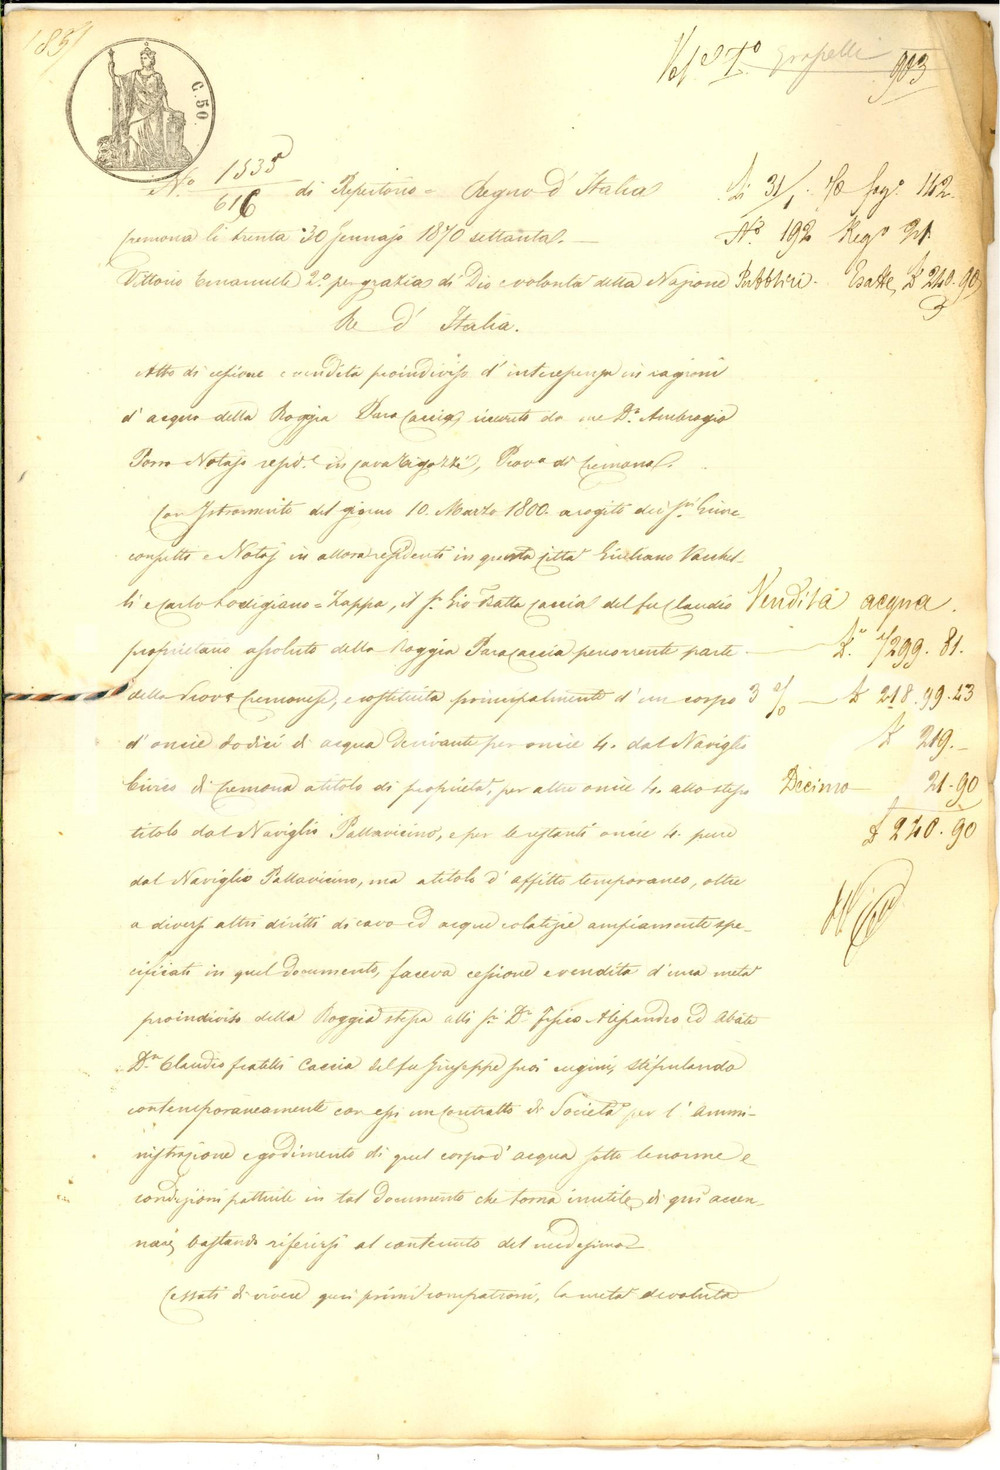 1851
C. 50.
Vol. 903
N.o 1535 / 616 di Repertorio = Regno d' Italia
Cremona li trenta 30 Gennajo 1870 settanta. —
Vittorio Emanuele 2.o per grazia di Dio e volontà della Nazione
Re d' Italia.
Li 31/1 70 fog.o 142.
N.o 192 Reg.o 21
Pubblici. Esatte £ 240.90
Atto di cessione e vendita proindiviso d' interessenza in ragioni
d' acqua della Roggia Dara Caccia, ricevuto da me D.r Ambrogio
Porro Notajo resid.e in Cava Tigozzi, Prov.a di Cremona.
Con Istromento del giorno 10. Marzo 1800. a rogito dei S.ri Giure-
consulti e Notaj in allora residenti in questa città Giuliano Vachel-
li e Carlo Lodigiano = Zappa, il S.r Gio Batta Caccia del fu Claudio
proprietario assoluto della Roggia Dara Caccia percorrente parte
della Prov.a Cremonese, e costituita principalmente d' un corpo
d' oncie dodici di acqua derivante per oncie 4. dal Naviglio
Civico di Cremona a titolo di proprietà, per altre oncie 4. allo stesso
titolo dal Naviglio Pallavicino, e per le restanti oncie 4. pure
dal Naviglio Pallavicino, ma a titolo d' affitto temporaneo, oltre
a diversi altri diritti di cavo ed acque colatizie ampiamente spe-
cificati in quel documento, faceva cessione e vendita d' una metà
proindiviso della Roggia stessa alli S.ri D.r Fisico Alessandro ed Abate
D.n Claudio fratelli Caccia del fu Giuseppe suoi cugini, stipulando
contemporaneamente con essi un contratto di Società per l' Ammi-
nistrazione e godimento di quel corpo d' acqua sotto le norme e
condizioni pattuite in tal documento che torna inutile di qui accen-
nare, bastando riferirsi al contenuto del medesimo
Cessati di vivere quei primi compadroni, la metà devoluta
Vendita acqua.
£. 7299.81.
3 % — £ 218.99.43
£ 219.—
Decimo — 21.90
£ 240.90